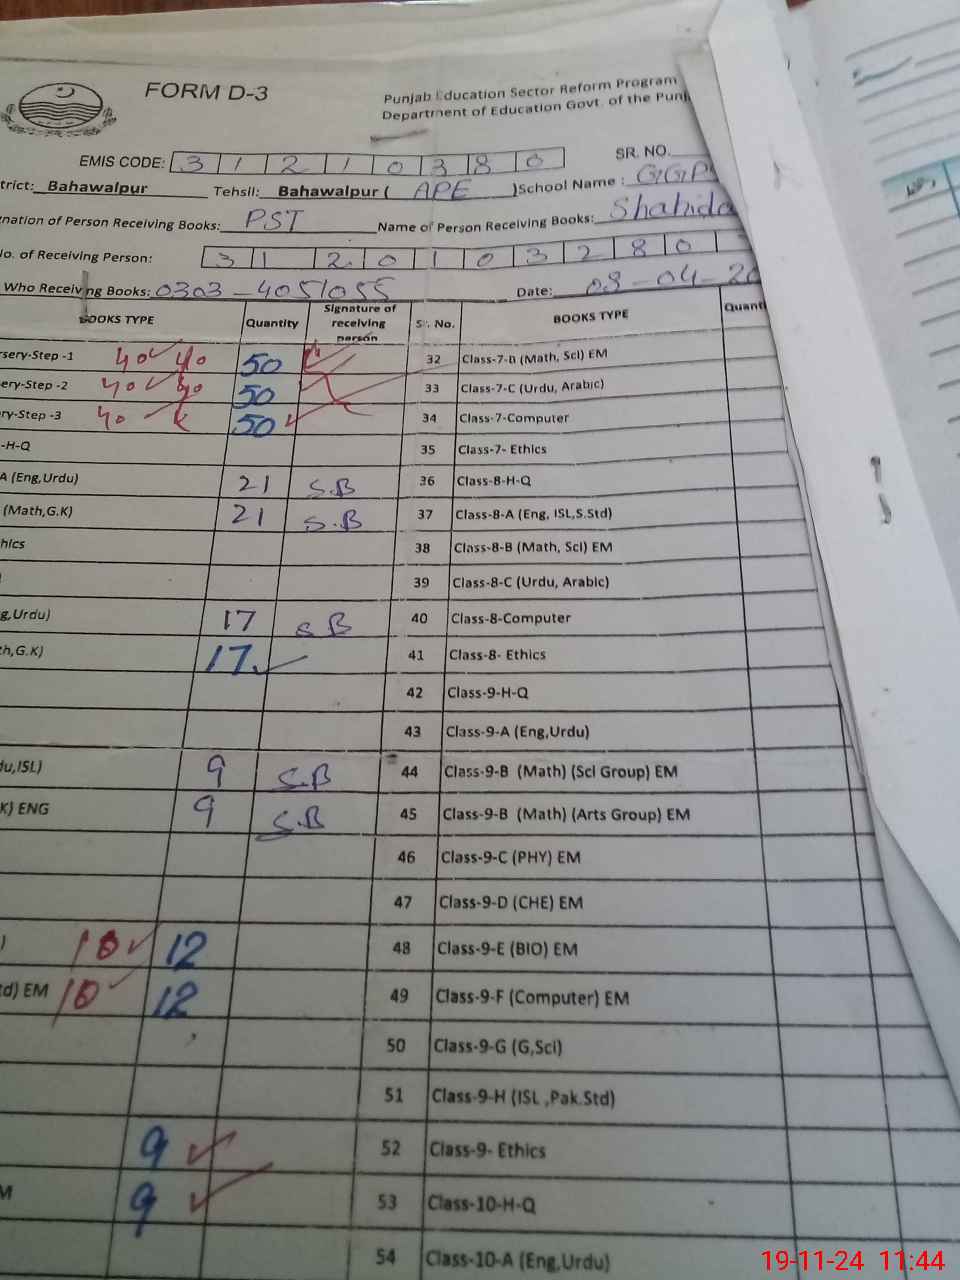 FORM D-3
Punjab Education Sector Reform Program
Department of Education Govt. of the Punj
EMIS CODE: 3 1 2 1 0 3 8 0
SR. NO.
trict: Bahawalpur Tehsil: Bahawalpur ( APE ) School Name : GGPS
nation of Person Receiving Books: PST Name of Person Receiving Books: Shahida
No. of Receiving Person: 3 1 2 0 1 0 3 2 8 0
Who Receiving Books: 0303-4051055 Date: 08-04-20
BOOKS TYPE Quantity Signature of receiving person Sr. No. BOOKS TYPE Quanti
rsery-Step -1 40 40 50 32 Class-7-B (Math, Sci) EM
ery-Step -2 40 40 50 33 Class-7-C (Urdu, Arabic)
ry-Step -3 40 50 34 Class-7-Computer
-H-Q 35 Class-7- Ethics
A (Eng,Urdu) 21 S.B 36 Class-8-H-Q
(Math,G.K) 21 S.B 37 Class-8-A (Eng, ISL,S.Std)
hics 38 Class-8-B (Math, Sci) EM
39 Class-8-C (Urdu, Arabic)
g,Urdu) 17 S B 40 Class-8-Computer
th,G.K) 17 41 Class-8- Ethics
42 Class-9-H-Q
43 Class-9-A (Eng,Urdu)
du,ISL) 9 S.B 44 Class-9-B (Math) (Sci Group) EM
K) ENG 9 S.B 45 Class-9-B (Math) (Arts Group) EM
46 Class-9-C (PHY) EM
47 Class-9-D (CHE) EM
) 10 12 48 Class-9-E (BIO) EM
td) EM 10 12 49 Class-9-F (Computer) EM
50 Class-9-G (G,Sci)
51 Class-9-H (ISL ,Pak.Std)
9 52 Class-9- Ethics
M 9 53 Class-10-H-Q
54 Class-10-A (Eng,Urdu)
19-11-24 11:44